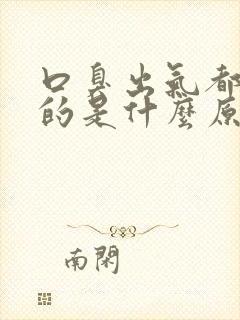 口臭出氣都
的是什麼原
南閑